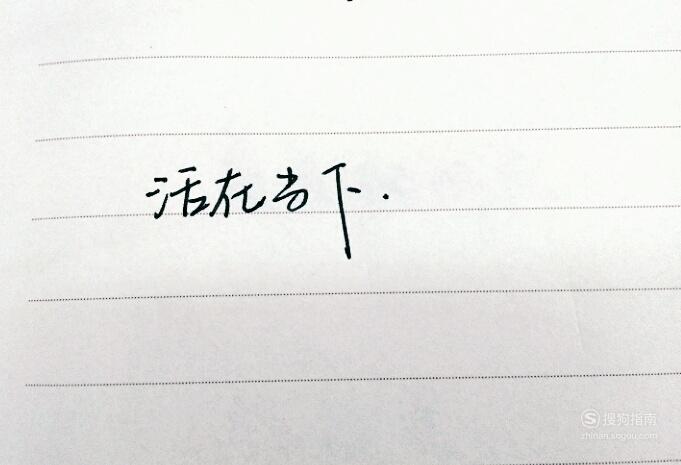 活在当下.
搜狗指南
zhinan.sogou.com